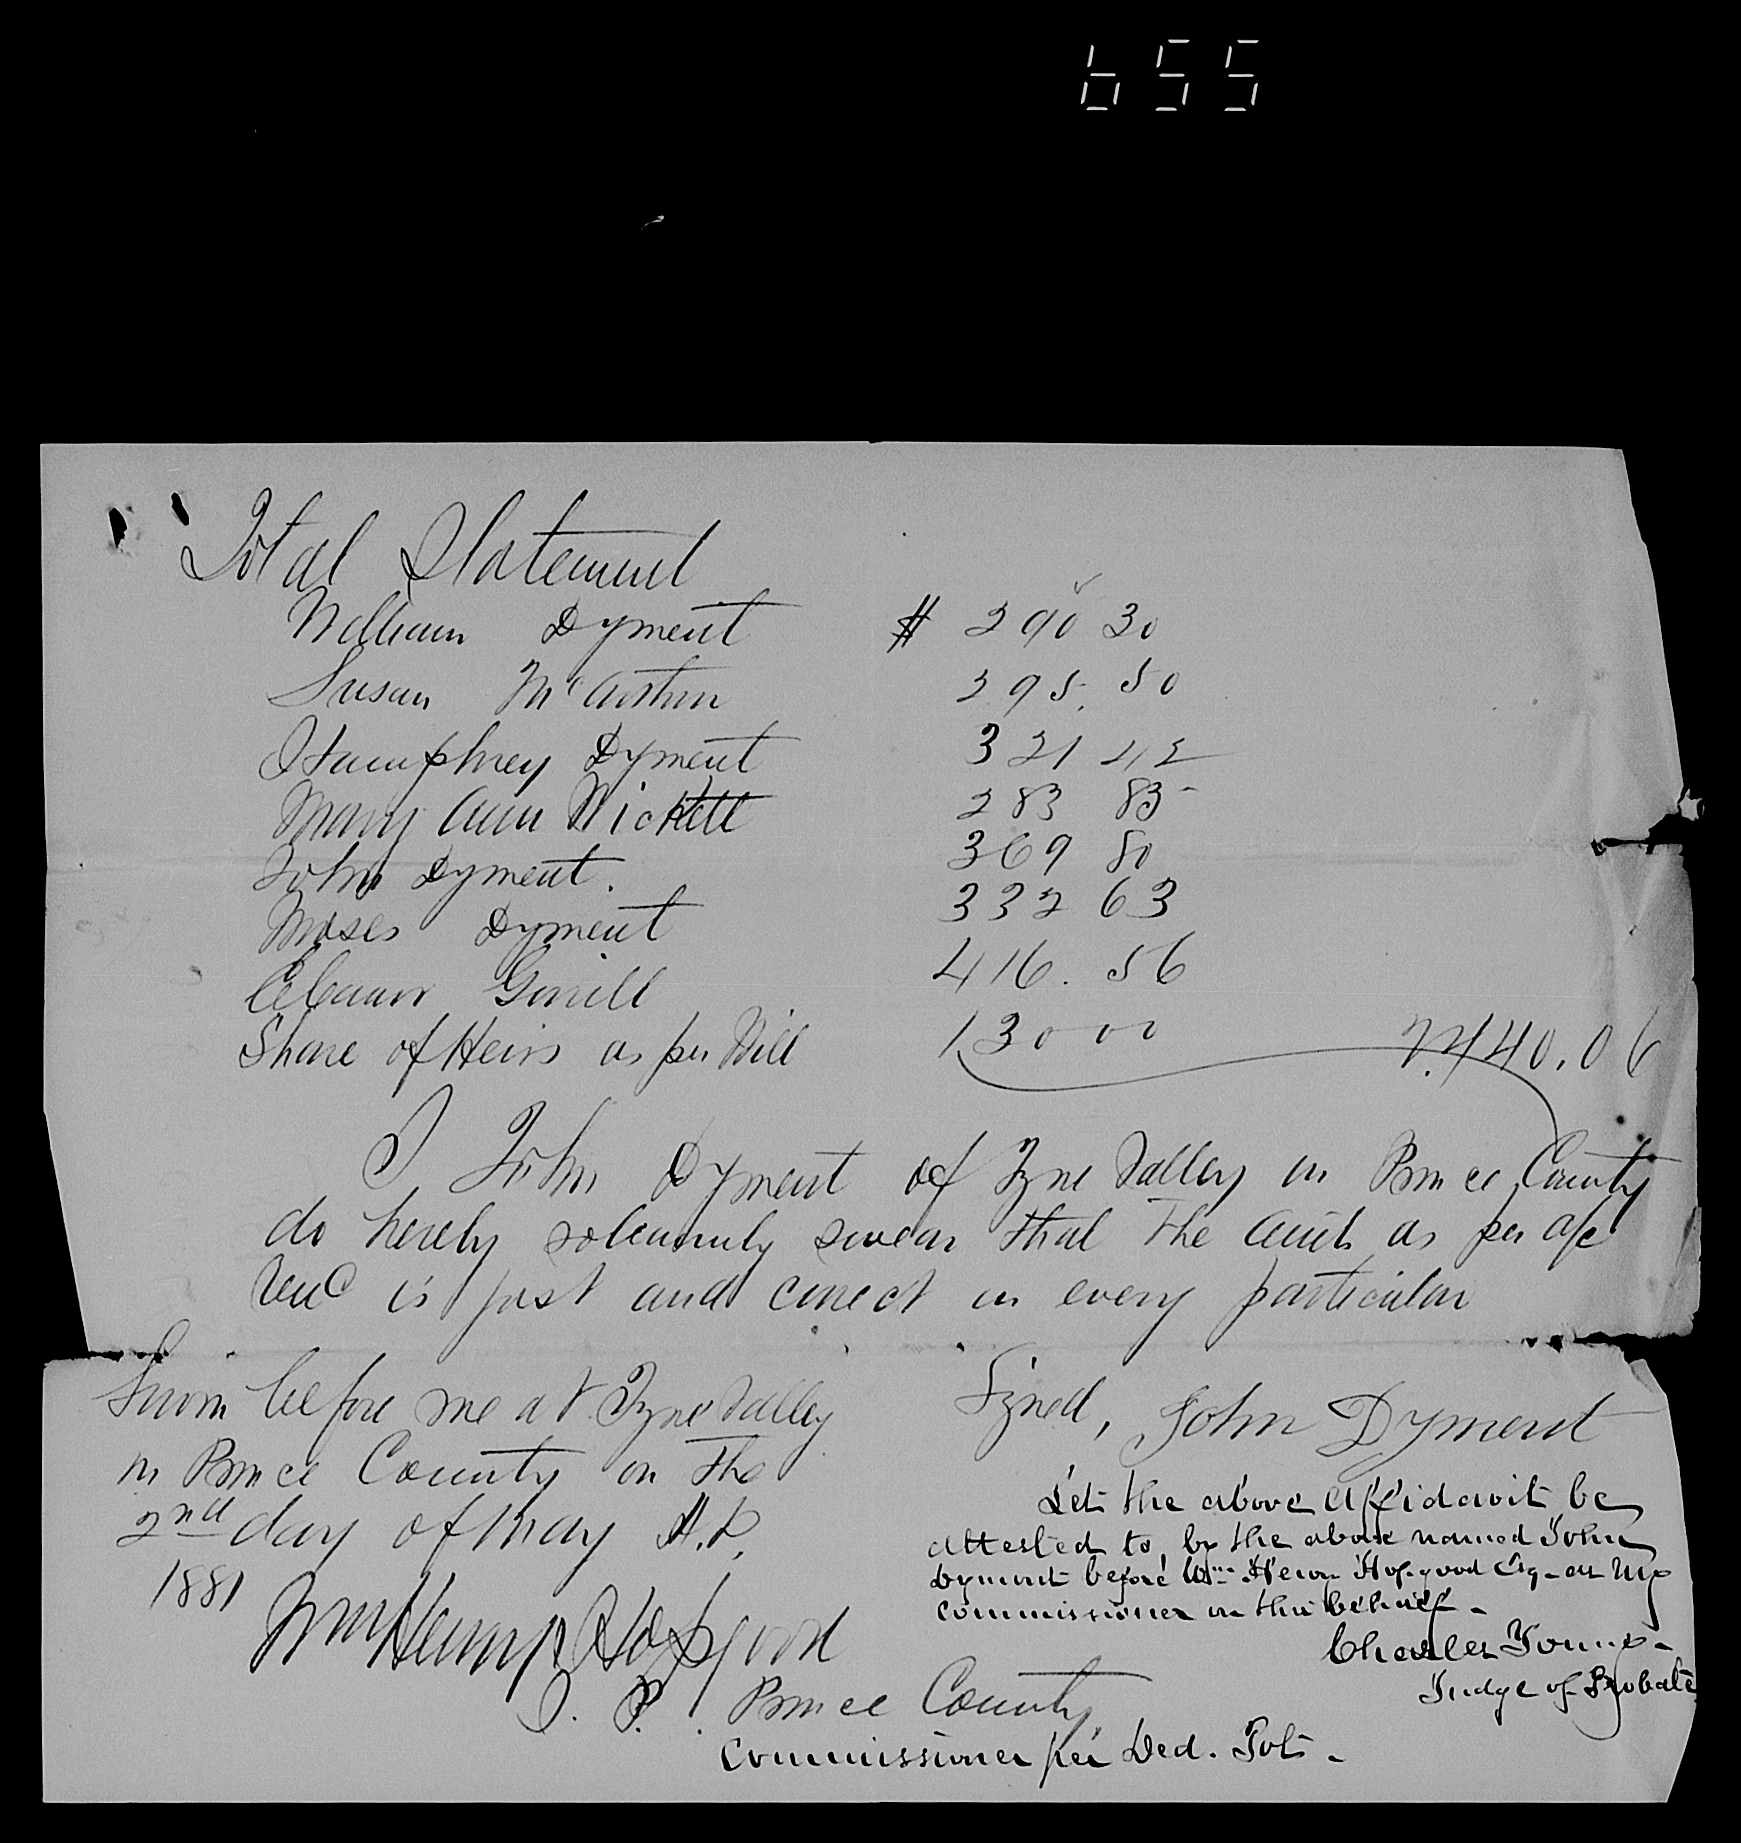 655
Total Statement
William Dyment # 290 30
Susan McArthur 295. 50
Humphrey Dyment 321 42
Mary Ann 283 85
John Dyment. 369 80
Moses Dyment 332 63
Gorrill 416. 56
Share of Heirs as per Will 130 00 2.440.06
I John Dyment of Tyne Valley in Prince County
do hereby solemnly swear that the as per a/c
is just and correct in every particular
Sworn before me at Tyne Valley
in Prince County on the
2nd day of May A.D.
1881
Signed, John Dyment
Let the above affidavit be
attested to by the above named John
Dyment before Wm Henry Hopgood Esq - as my
commissioner in this behalf -
Charles Young -
Judge of Probate
Wm Henry Hopgood
J. P. Prince County
Commissioner per Ded. Pots -